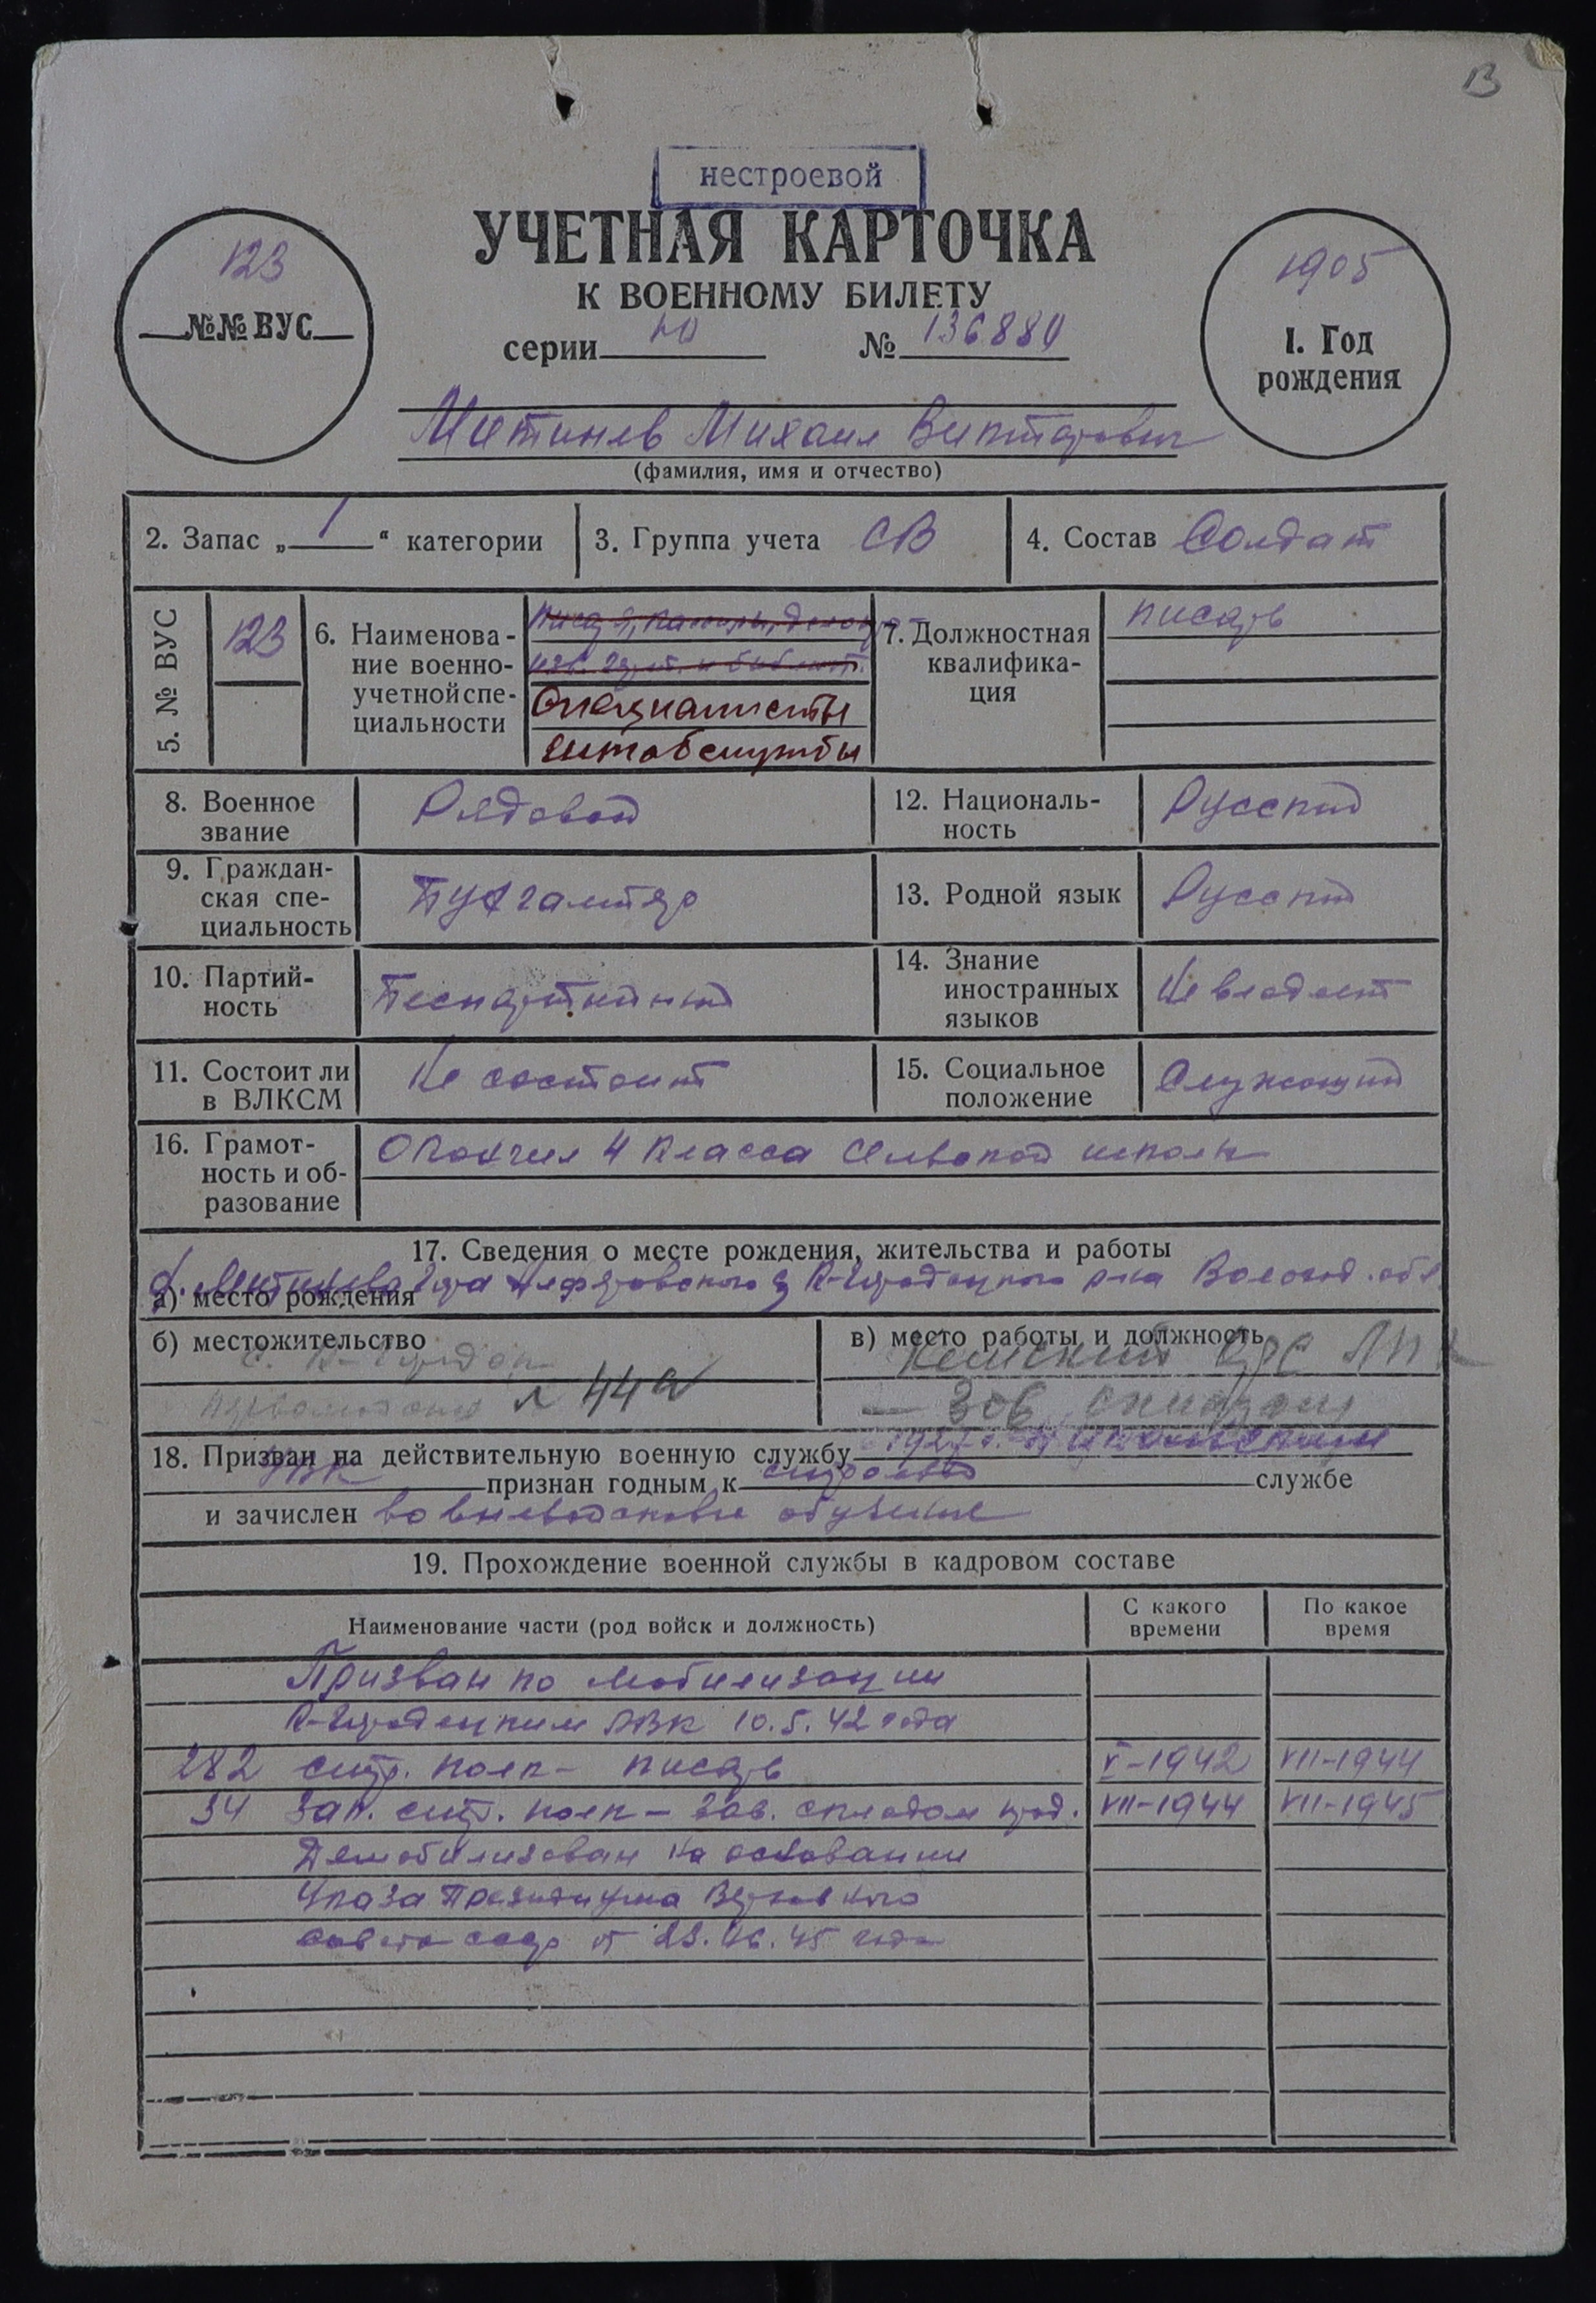 В
нестроевой
УЧЕТНАЯ КАРТОЧКА
К ВОЕННОМУ БИЛЕТУ
123
№№ ВУС
1905
1. Год
рождения
серии № 136880
Михаил Викторович
(фамилия, имя и отчество)
2. Запас „ 1 “ категории
3. Группа учета СВ
4. Состав Солдат
5. № ВУС
123
6. Наименова-
ние военно-
учетной спе-
циальности
Специалисты
штабслужбы
7. Должностная
квалифика-
ция
писарь
8. Военное
звание
Рядовой
12. Националь-
ность
Русский
9. Граждан-
ская спе-
циальность
Бухгалтер
13. Родной язык
Русский
10. Партий-
ность
Беспартийный
14. Знание
иностранных
языков
Не владеет
11. Состоит ли
в ВЛКСМ
Не состоит
15. Социальное
положение
Служащий
16. Грамот-
ность и об-
разование
Окончил 4 класса сельской школы
17. Сведения о месте рождения, жительства и работы
К-Городецкого р-на Волог. обл.
а) место рождения
б) местожительство
с. К-Городок
№ 44а
в) место работы и должность
Кемский ЛПХ
— зав.
18. Призван на действительную военную службу в 1927 г.
РВК признан годным к строевой службе
и зачислен во вневойсковое обучение
19. Прохождение военной службы в кадровом составе
Наименование части (род войск и должность)
С какого
времени
По какое
время
Призван по мобилизации
К-Городецким РВК 10.5.42 года
282 стр. полк - писарь V-1942 VII-1944
34 зап. стр. полк - зав. складом прод. VII-1944 VII-1945
Демобилизован на основании
Указа Президиума Верховного
Совета СССР от 23.06.45 года